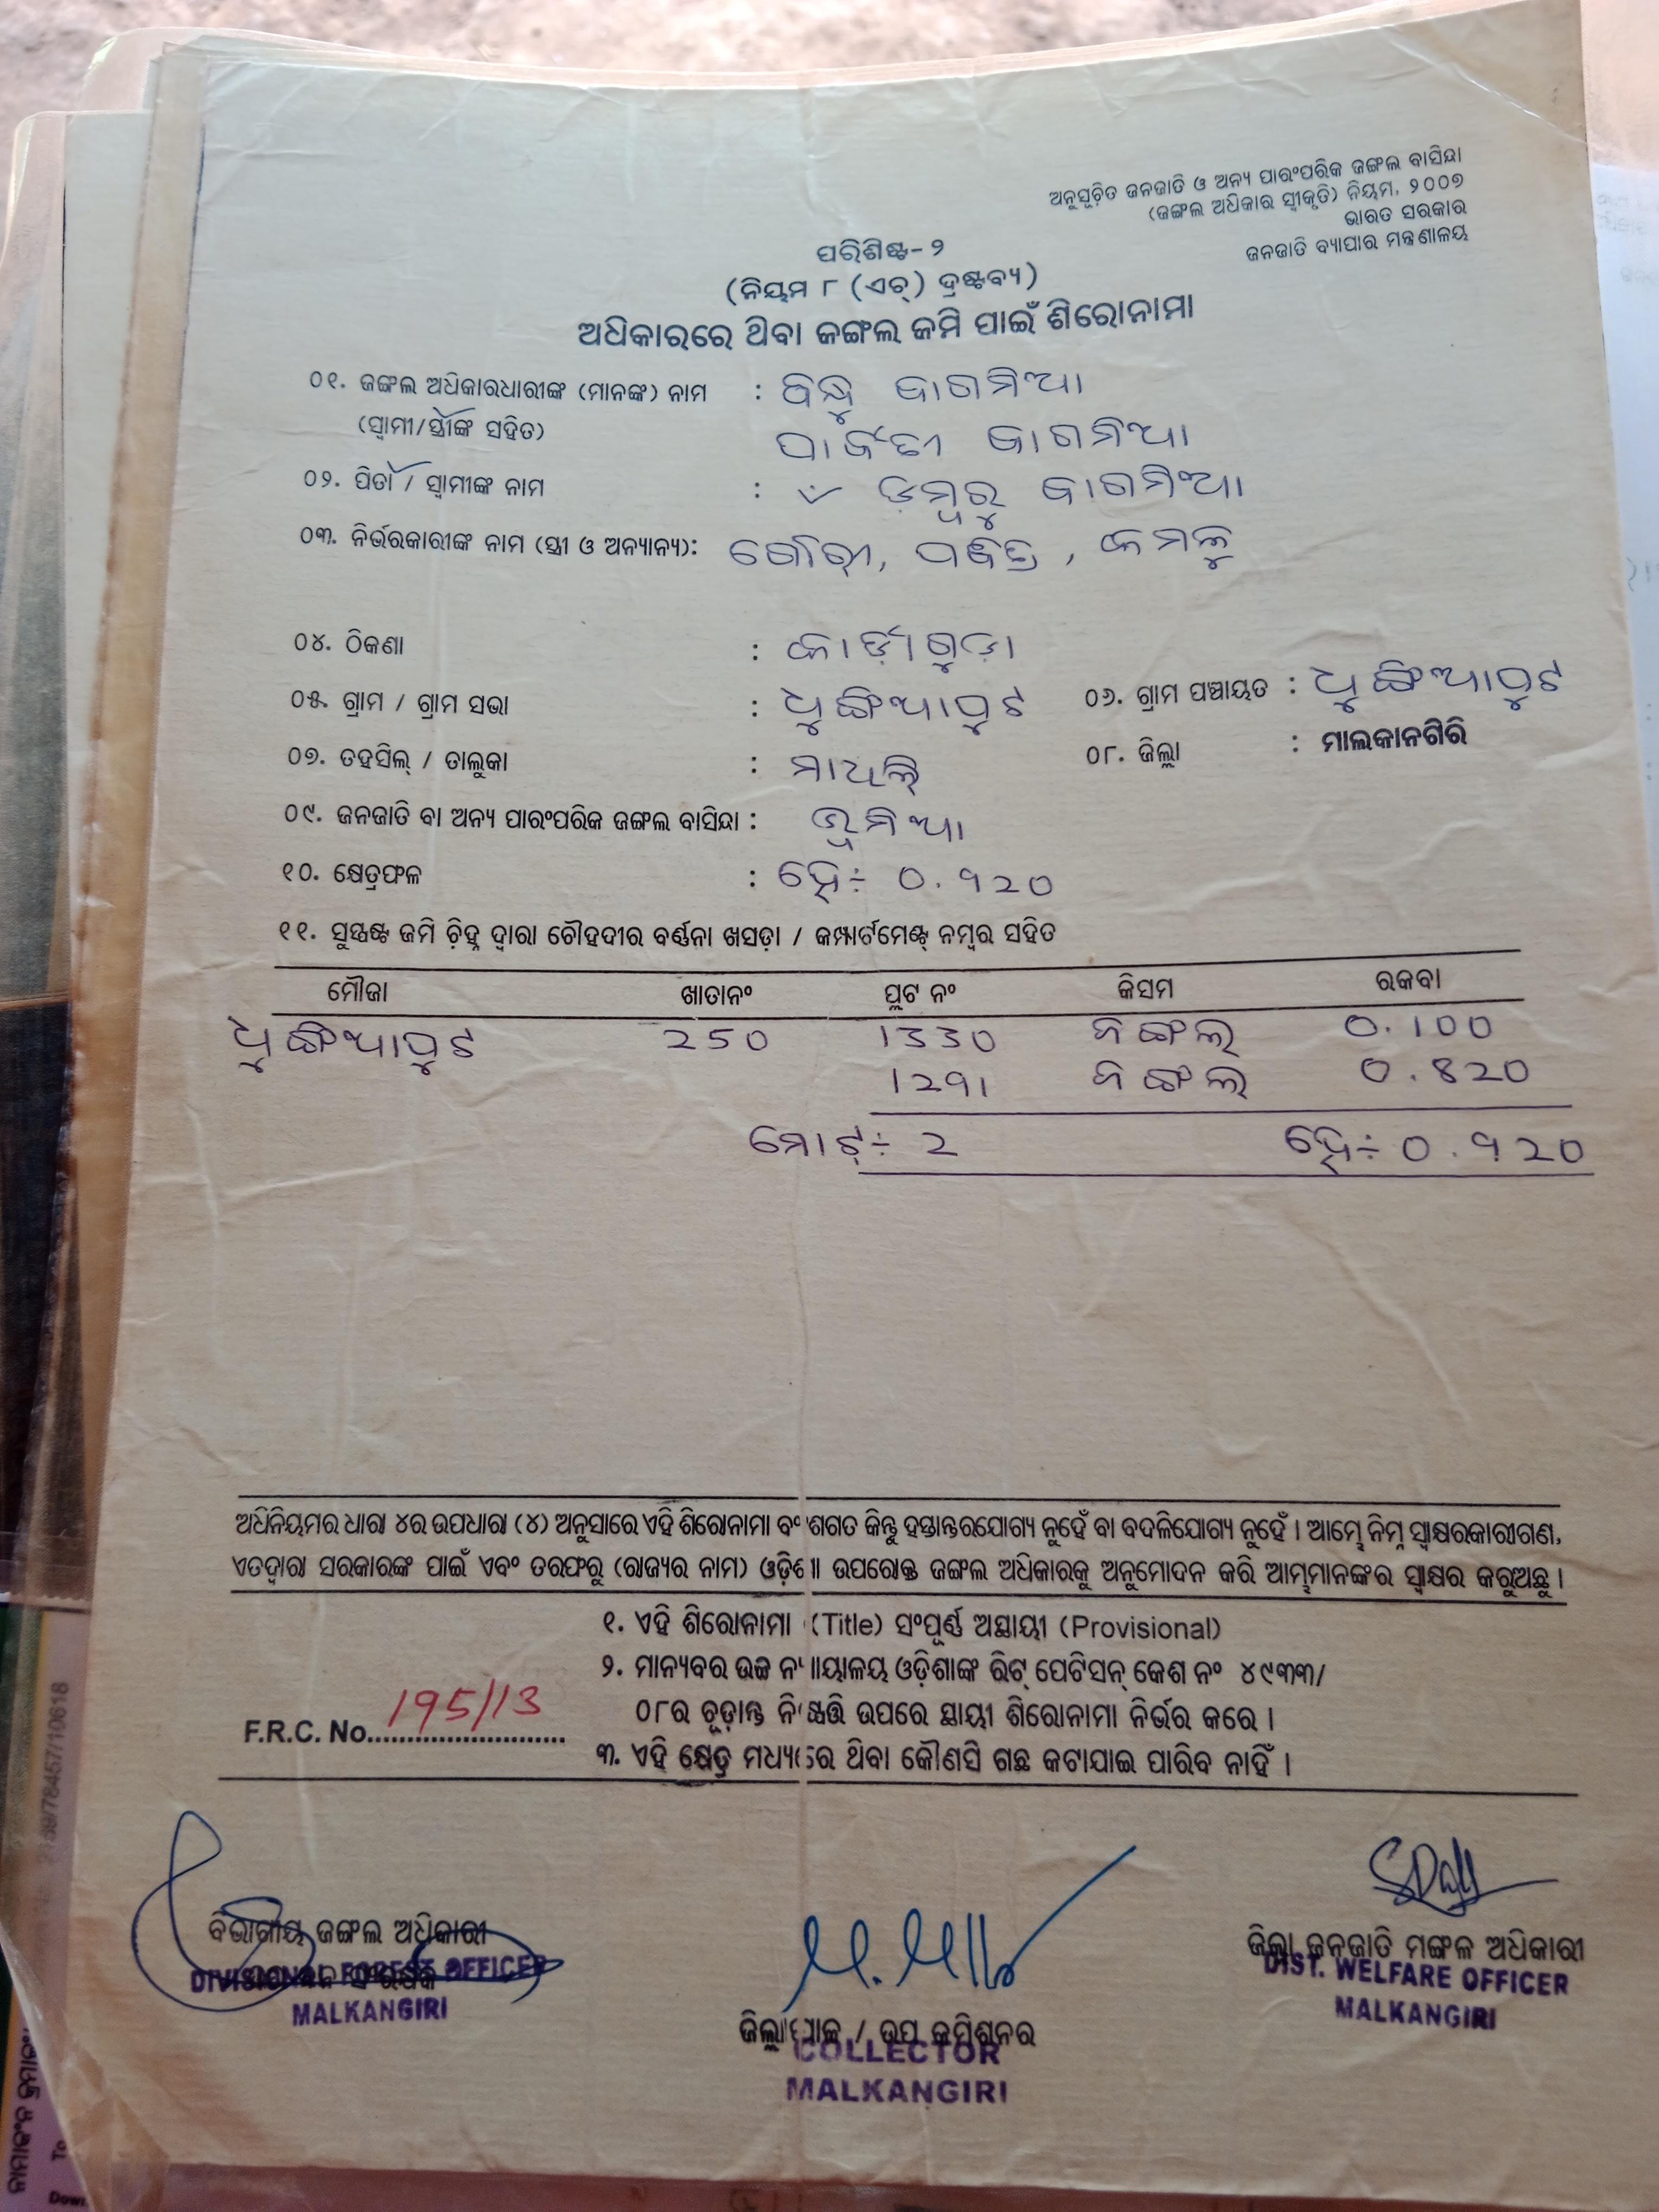 ଅନୁସୂଚିତ ଜନଜାତି ଓ ଅନ୍ୟ ପାରଂପରିକ ଜଙ୍ଗଲ ବାସିନ୍ଦା
(ଜଙ୍ଗଲ ଅଧିକାର ସ୍ୱୀକୃତି) ନିୟମ, ୨୦୦୭
ଭାରତ ସରକାର
ଜନଜାତି ବ୍ୟାପାର ମନ୍ତ୍ରଣାଳୟ
ପରିଶିଷ୍ଟ-୨
(ନିୟମ ୮ (ଏଚ୍) ଦ୍ରଷ୍ଟବ୍ୟ)
ଅଧିକାରରେ ଥିବା ଜଙ୍ଗଲ ଜମି ପାଇଁ ଶିରୋନାମା
୦୧. ଜଙ୍ଗଲ ଅଧିକାରଧାରୀଙ୍କ (ମାନଙ୍କ) ନାମ : ବନ୍ଧୁ ବାଗମିଆ
(ସ୍ୱାମୀ/ସ୍ତ୍ରୀଙ୍କ ସହିତ) ପାର୍ବତୀ ବାଗମିଆ
୦୨. ପିତା / ସ୍ୱାମୀଙ୍କ ନାମ : ଡମ୍ବରୁ ବାଗମିଆ
୦୩. ନିର୍ଭରକାରୀଙ୍କ ନାମ (ସ୍ତ୍ରୀ ଓ ଅନ୍ୟାନ୍ୟ): ଗୌରୀ, ପବିତ୍ର, କମଳୁ
୦୪. ଠିକଣା :
୦୫. ଗ୍ରାମ / ଗ୍ରାମ ସଭା : ଧୁଙ୍ଗିଆପୁଟ ୦୬. ଗ୍ରାମ ପଞ୍ଚାୟତ : ଧୁଙ୍ଗିଆପୁଟ
୦୭. ତହସିଲ୍ / ତାଲୁକା : ମାଥିଲି ୦୮. ଜିଲ୍ଲା : ମାଲକାନଗିରି
୦୯. ଜନଜାତି ବା ଅନ୍ୟ ପାରଂପରିକ ଜଙ୍ଗଲ ବାସିନ୍ଦା : ଭୂମିଆ
୧୦. କ୍ଷେତ୍ରଫଳ : ହେ÷ 0.920
୧୧. ସୁସ୍ପଷ୍ଟ ଜମି ଚିହ୍ନ ଦ୍ୱାରା ଚୌହଦୀର ବର୍ଣ୍ଣନା ଖସଡ଼ା / କମ୍ପାର୍ଟମେଣ୍ଟ୍ ନମ୍ବର ସହିତ
ମୌଜା ଖାତାନଂ ପ୍ଲଟ ନଂ କିସମ ରକବା
ଧୁଙ୍ଗିଆପୁଟ 250 1330 ଜଙ୍ଗଲ 0.100
1291 ଜଙ୍ଗଲ 0.820
ମୋଟ୍÷ 2 ହେ÷ 0.920
ଅଧିନିୟମର ଧାରା ୪ର ଉପଧାରା (୪) ଅନୁସାରେ ଏହି ଶିରୋନାମା ବଂଶଗତ କିନ୍ତୁ ହସ୍ତାନ୍ତରଯୋଗ୍ୟ ନୁହେଁ ବା ବଦଳିଯୋଗ୍ୟ ନୁହେଁ । ଆମ୍ଭେ ନିମ୍ନ ସ୍ୱାକ୍ଷରକାରୀଗଣ,
ଏତଦ୍ୱାରା ସରକାରଙ୍କ ପାଇଁ ଏବଂ ତରଫରୁ (ରାଜ୍ୟର ନାମ) ଓଡ଼ିଶା ଉପରୋକ୍ତ ଜଙ୍ଗଲ ଅଧିକାରକୁ ଅନୁମୋଦନ କରି ଆମ୍ଭମାନଙ୍କର ସ୍ୱାକ୍ଷର କରୁଅଛୁ ।
୧. ଏହି ଶିରୋନାମା (Title) ସଂପୂର୍ଣ୍ଣ ଅସ୍ଥାୟୀ (Provisional)
୨. ମାନ୍ୟବର ଉଚ୍ଚ ନ୍ୟାୟାଳୟ ଓଡ଼ିଶାଙ୍କ ରିଟ୍ ପେଟିସନ୍ କେଶ ନଂ ୪୯୩୩/
୦୮ର ଚୂଡ଼ାନ୍ତ ନିଷ୍ପତ୍ତି ଉପରେ ସ୍ଥାୟୀ ଶିରୋନାମା ନିର୍ଭର କରେ ।
F.R.C. No. 195/13
୩. ଏହି କ୍ଷେତ୍ର ମଧ୍ୟରେ ଥିବା କୌଣସି ଗଛ କଟାଯାଇ ପାରିବ ନାହିଁ ।
ବିଭାଗୀୟ ଜଙ୍ଗଲ ଅଧିକାରୀ
DIVISIONAL FOREST OFFICER
MALKANGIRI
ଜିଲ୍ଲାପାଳ / ଉପ କମିଶନର
COLLECTOR
MALKANGIRI
ଜିଲ୍ଲା ଜନଜାତି ମଙ୍ଗଳ ଅଧିକାରୀ
DIST. WELFARE OFFICER
MALKANGIRI